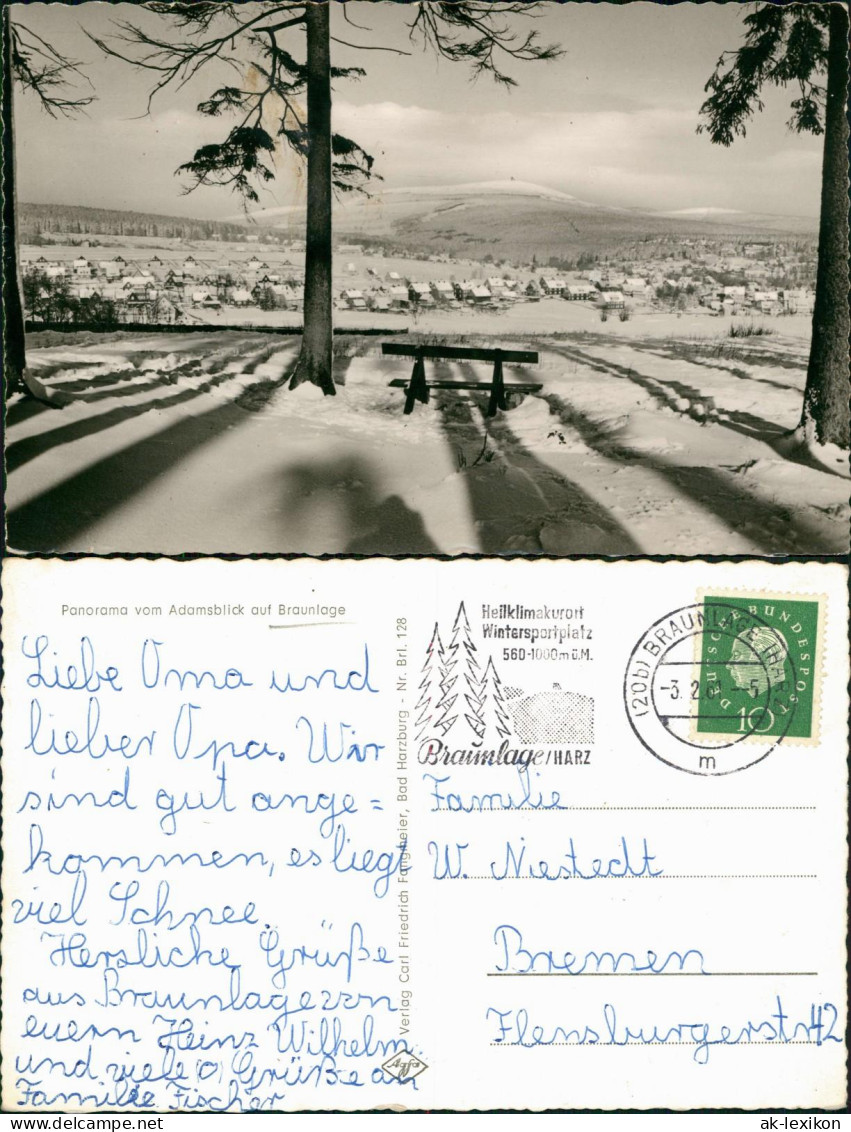 Panorama vom Adamsblick auf Braunlage
Liebe Oma und
lieber Opa. Wir
sind gut ange=
kommen, es liegt
viel Schnee.
Herzliche Grüße
aus Braunlage von
euern Heinz Wilhelm
und viele Grüße an
Familie Fischer
Verlag Carl Friedrich Fangmeier, Bad Harzburg - Nr. Brl. 128
Agfa
Heilklimakurort
Wintersportplatz
560-1000m ü.M.
Braunlage/HARZ
(20b) BRAUNLAGE (HARZ)
-3. 2. 61 --5
m
DEUTSCHE BUNDESPOST
10
Familie
W. Niestedt
Bremen
Flensburgerstr 42
ak-lexikon